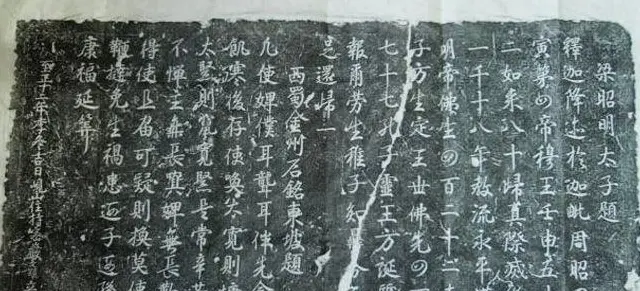 梁昭明太子題
釋迦降迹於迦毗周昭
寅第四帝穆王壬申五十
二如來八十歸真際滅
一千十八年教流永平
明帝佛生四百二十二
子方生定王世佛先四
七十七孔子靈王方誕
報爾勞生雅子知
足還歸一
西蜀金州石銘東坡題
凡使婢僕耳聾耳伴先念
飢寒後存使喚太寬則
太緊則冤寬緊是常辛
不憚主無長冀婢無長
得使且留可疑則換莫
鞭撻免生禍患 子 孫
康福延算